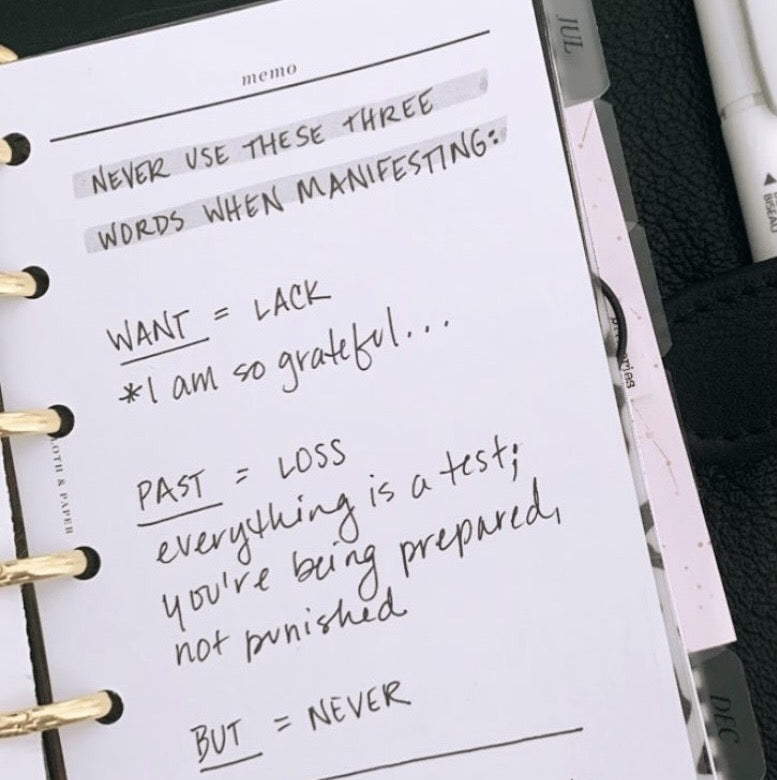 memo
NEVER USE THESE THREE
WORDS WHEN MANIFESTING:
WANT = LACK
*I am so grateful...
PAST = LOSS
everything is a test;
you're being prepared,
not punished
BUT = NEVER
JUL
DEC
BISEAU
OTH & PAPER